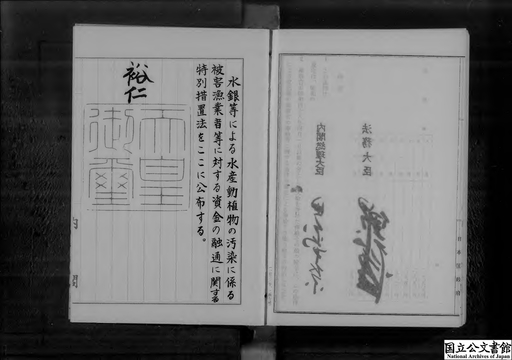 水銀等による水産動植物の汚染に係る
被害漁業者等に対する資金の融通に関する
特別措置法をここに公布する。
裕仁
天皇
御璽
法務大臣
内閣総理大臣
国立公文書館
National Archives of Japan